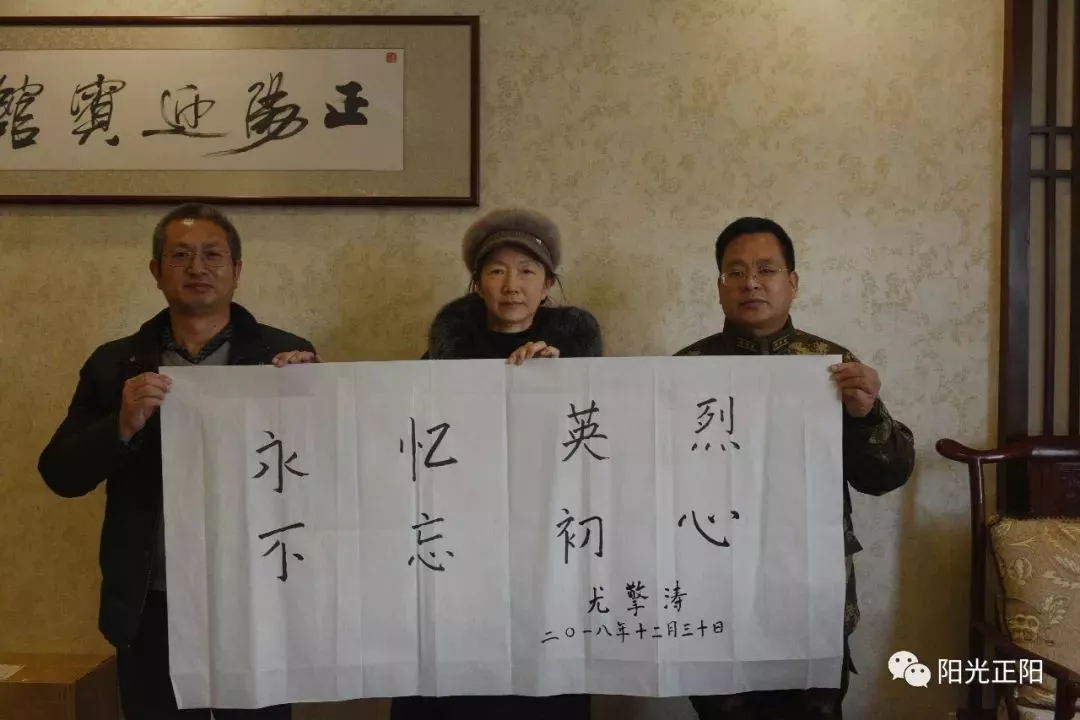 正陽迎賓館
永忆英烈
不忘初心
尤擎涛
二〇一八年十二月三十日
阳光正阳